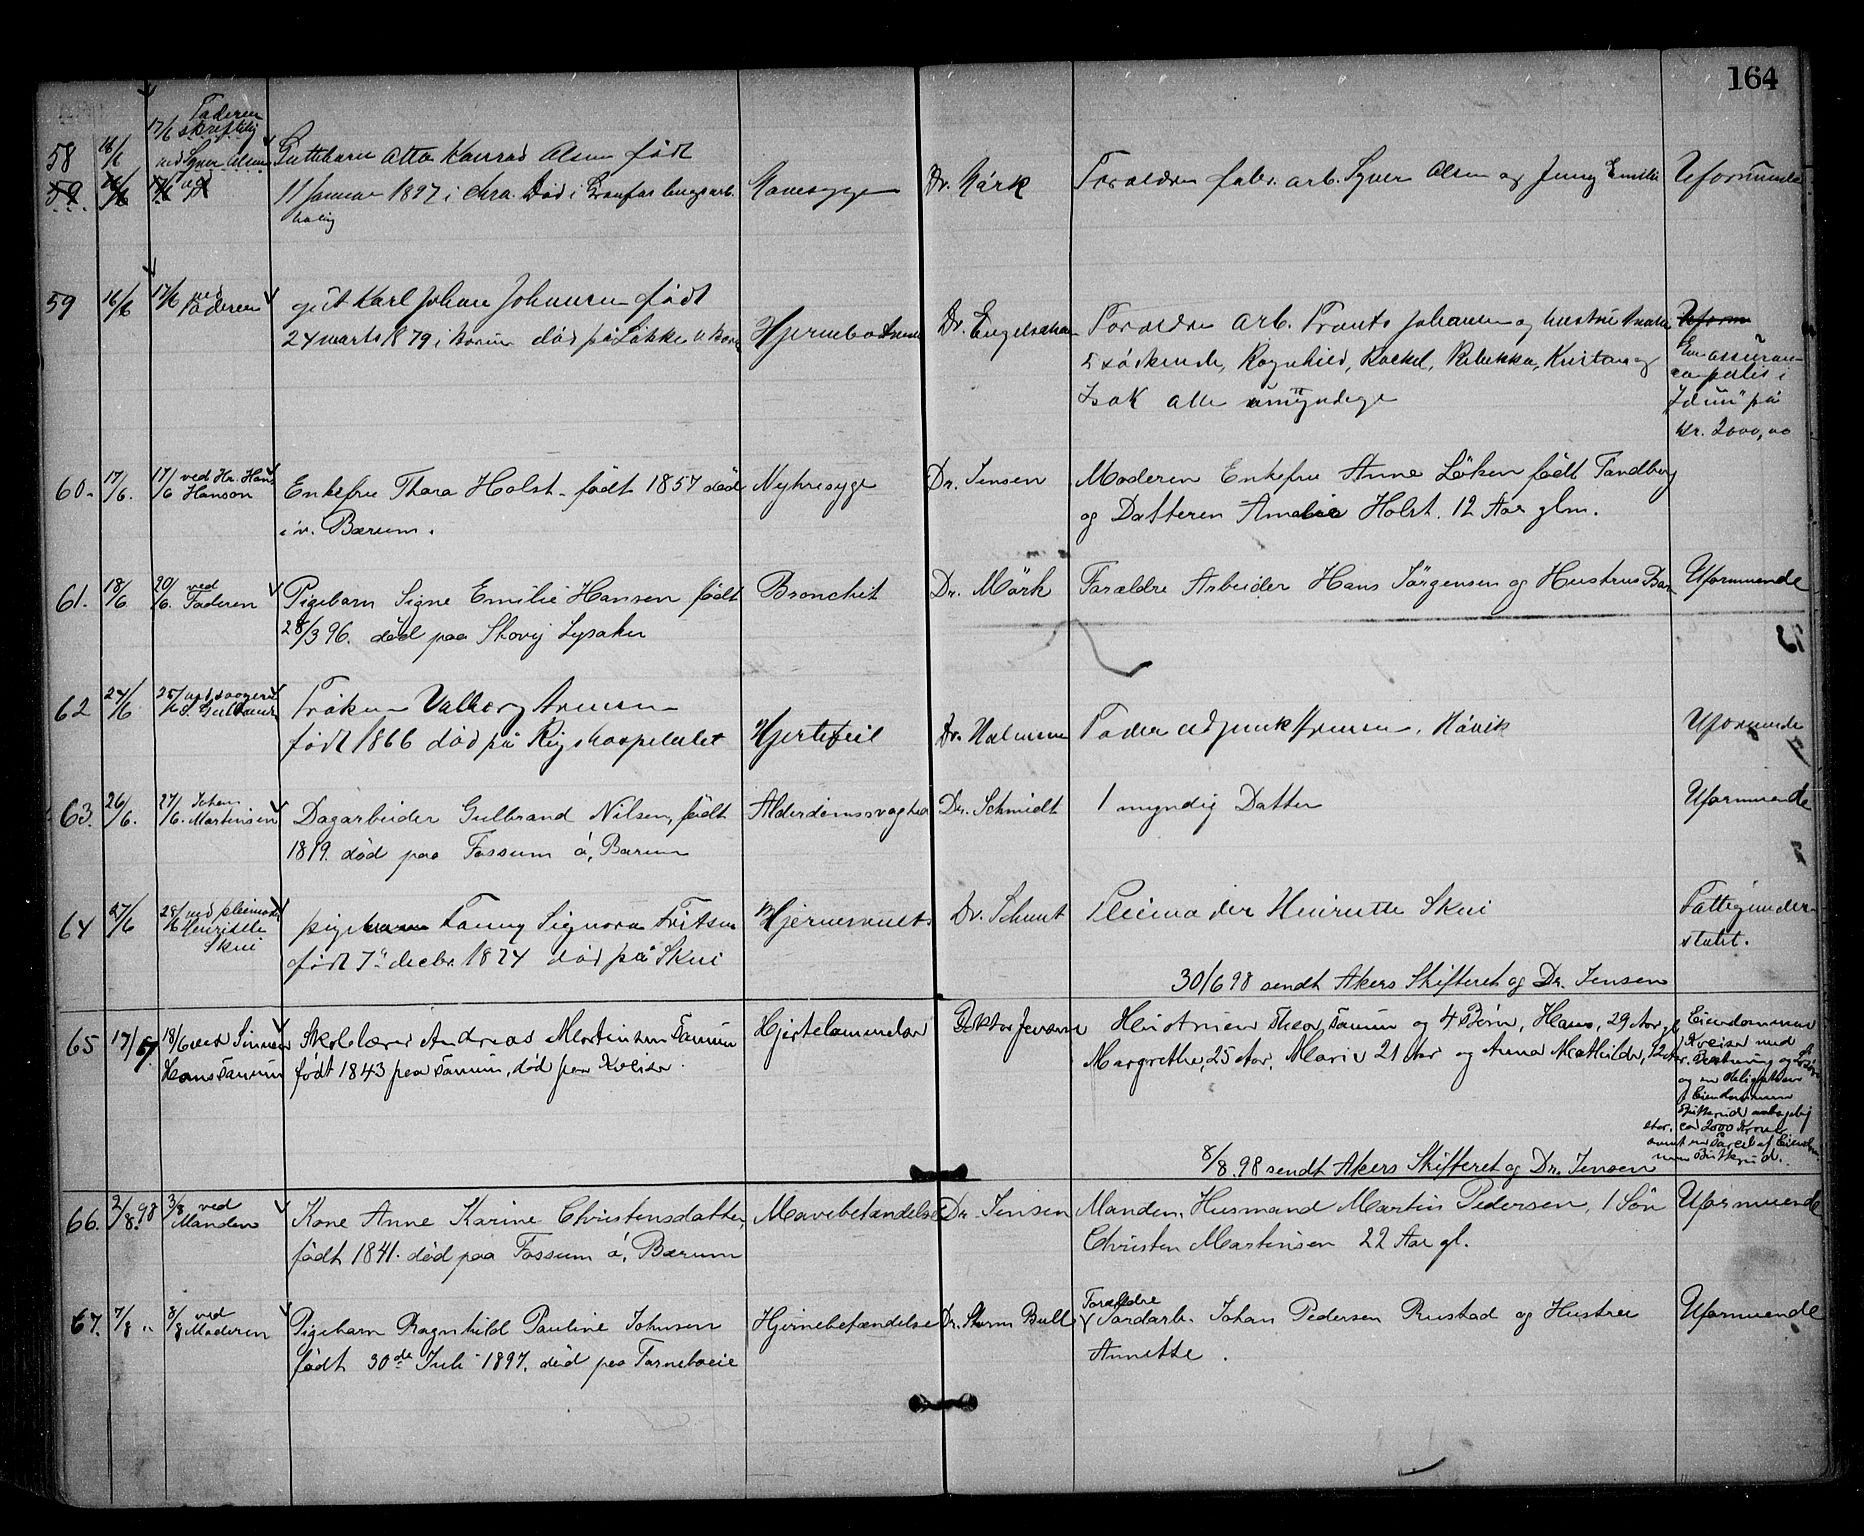 164
58 16/6 17/6 Faderen skriftlig ved Syver Olsen Guttebarn Otto Konrad Olsen født
59 16/6 17/6 11 Januar 1897 i Chra. Død i Granfos brugs arb. Mavesyge Dr. Mörk Forældre fabr. arb. Syver Olsen og Jenny Emilie Uformuende
bolig
59 16/6 17/6 ved Faderen gut Karl Johan Johansen født
24 marts 1879 i Bærum død på Løkke v. Bærum Dr. Engelschøn Forældre Arb. Frants Johansen og hustru
5 södskende, Ragnhild, Rachel, Rebekka, Kristian og
Isak alle umyndige
Uform
En assuran-
ce polis i
"Idun" på
kr. 2000,00
60. 17/6. 17/6 ved Hr. Hans Hanson Enkefru Thora Holst født 1857 død Nyresyge Dr. Jensen Moderen Enkefru Anne Löken født Tandberg
i v. Bærum. og Datteren Amalie Holst. 12 Aar glm.
61. 18/6 20/6. ved Faderen Pigebarn Signe Emilie Hansen født Bronchit Dr. Mörk Forældre Arbeider Hans Jörgensen og Hustrus Barn Uformuende
28/3 96. død paa Skovly Lysaker
62 24/6 25/6 Frøken Valborg Arnesen
født 1866 död på Rigshospitalet Hjertefeil Dr. Malmsen Fader adjunkt Arnesen, Hövik Uformuende
63. 26/6. 27/6. Johan Martinsen Dagarbeider Gulbrand Nilsen, født Alderdomssvaghed Dr. Schmidt 1 myndig Datter Uformuende
1819. död paa Fossum ö, Bærum
64 27/6 28/6 ved pleiemoder Henriette Skui pigebarn Fanny Signora Fritsen Hjernesvulst Dr. Schmit Pleiemoder Henriette Skui Fattigunder-
støtet.
født 7de decbr. 1874 død på Skui
30/6 98 sendt Akers Skifteret og Dr. Jensen
65 17/7 18/7 ved Sönnen Hans Tanum Skolelærer Andreas Mortinsen Tanum Hjertelammelse Doktor Jensen Hustruen Thea Tanum og 4 Börn, Hans, 29 Aar gl,
født 1843 paa Tanum, død paa Kveise. Margrethe, 25 Aar, Marie 21 Aar og Anna Mathilde, 12 Aar.
Eiendommen
Kveise med
og en Obligation
i Eiendommen
stor, ca 2000 Kroner
8/8. 98 sendt Akers Skifteret og Dr. Jensen
66. 2/8. 98 3/8 ved Manden Kone Anne Karine Christensdatter Mavebetændelse Dr. Jensen Manden, Husmand Martin Pedersen, 1 Sön Uformuende
født 1841. död paa Fossum ö, Bærum Christen Martinsen 22 Aar gl.
67. 7/8 " 8/8 ved Moderen Pigebarn Ragnhild Pauline Johnsen Hjernebetændelse Dr. Storm Bull Forældre
Jordarb. Johan Pedersen Rustad og Hustru Uformuende
født 30de Juli 1897. död paa Tanneboeie Annette.